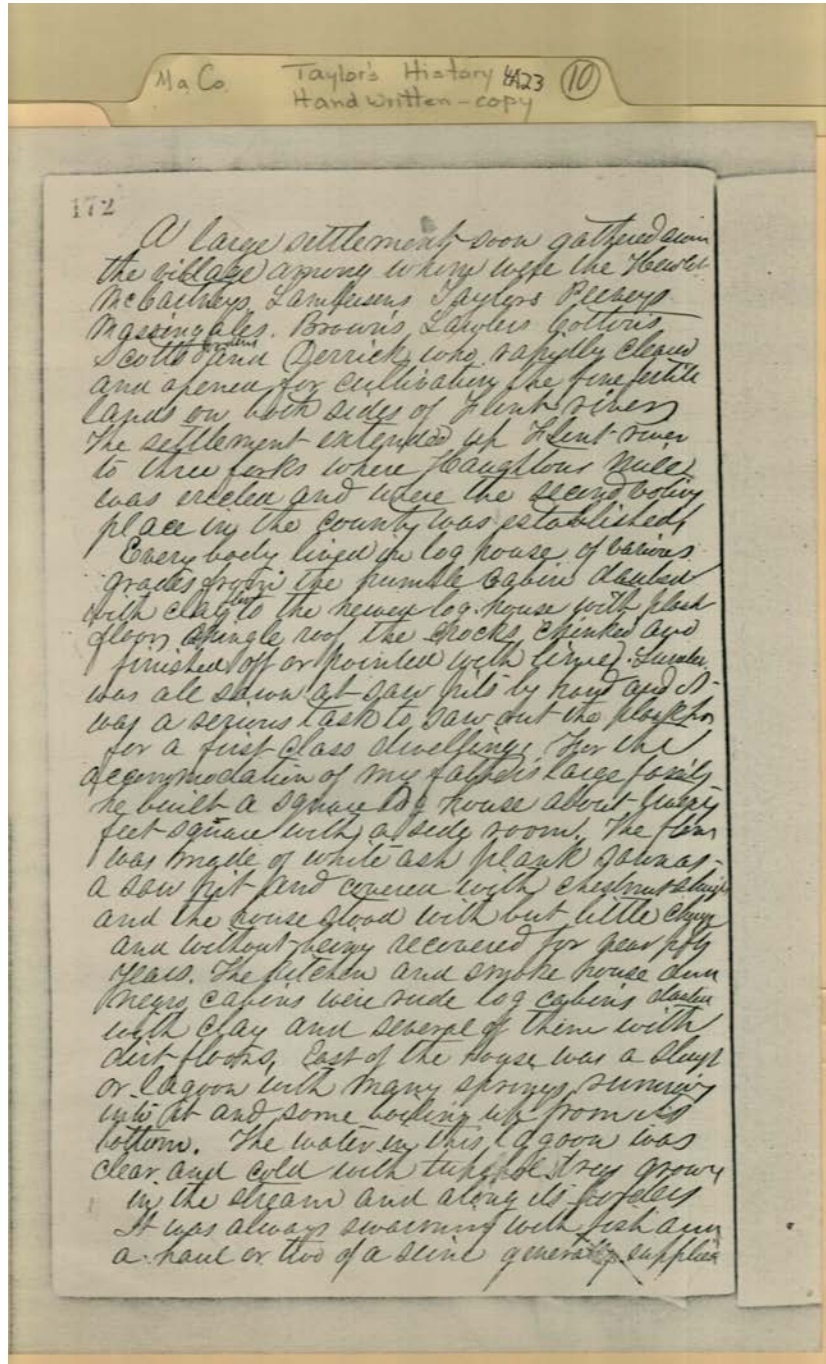 Ma. Co. Taylor's History 4A23 10
Handwritten - copy
172
A large settlement soon gathered
the village among whom were the
McCartneys, Taylors
Massingales. Browns, Lawlers Cottons
Scotts and Derrick who rapidly cleared
and opened for cultivation the fine fertile
lands on both sides of Flint river
The settlement extended up Flint river
to three forks where Haughtons Mill
was erected and where the second voting
place in the county was established,
Every body lived in log house of various
grades from the humble cabin daubed
with clay to the hewed log house with plank
floor shingle roof the cracks chinked and
finished off or pointed with lime. Lumber
was all sawn at saw pits by hand and it
was a serious task to saw out the plank for
for a first class dwelling. For the
accommodation of my father's large family
he built a square log house about twenty
feet square with a side room. The floor
was made of white ash plank sawn at
a saw pit and covered with chestnut shingles
and the house stood with but little change
and without being recovered for near fifty
years. The kitchen and smoke house and
negro cabins were rude log cabins
with clay and several of them with
dirt floors, East of the house was a
or lagoon with many springs running
into it and some boiling up from its
bottom. The water in this lagoon was
clear and cold with trees growing
in the stream and along its borders
It was always swarming with fish and
a haul or two of a seine generally supplied